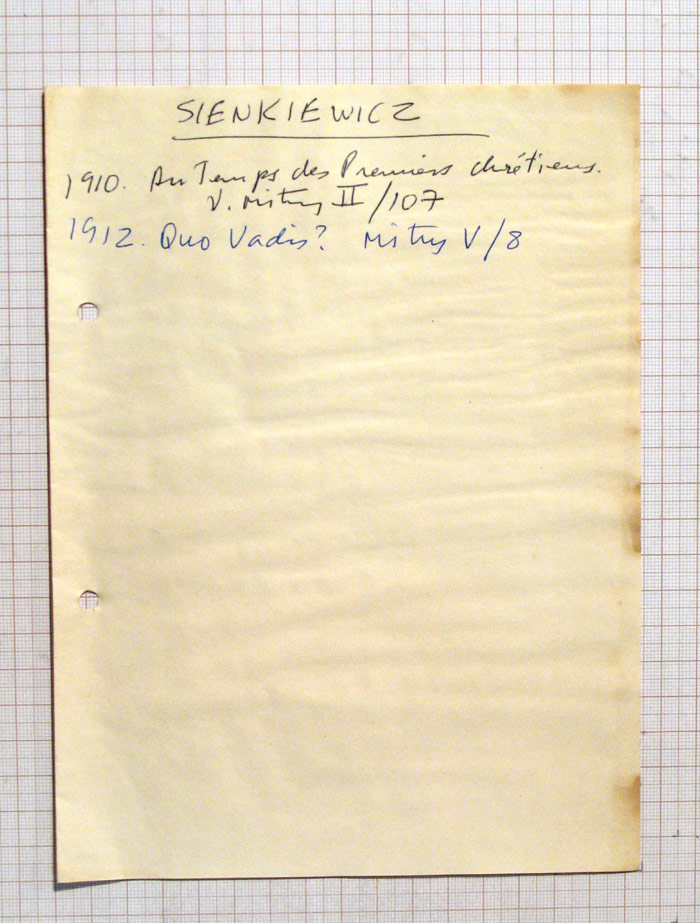 SIENKIEWICZ
1910. Au Temps des Premiers chrétiens.
V. Mitry II/107
1912. Quo Vadis? Mitry V/8